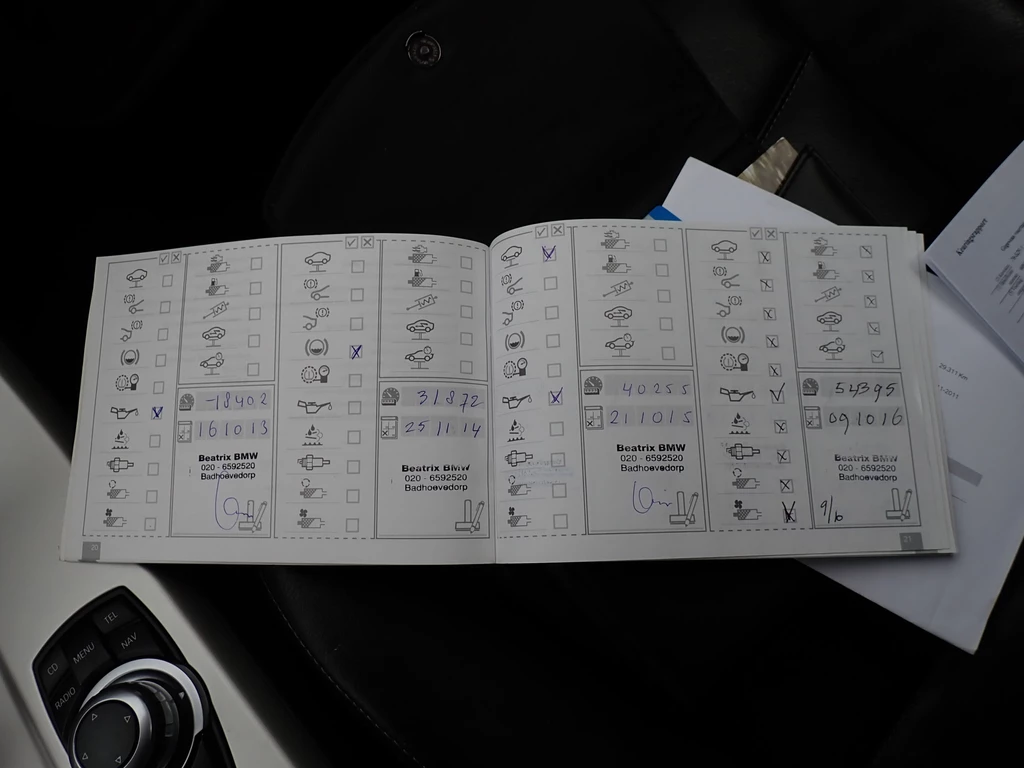 -18402
161013
Beatrix BMW
020 - 6592520
Badhoevedorp
20
31872
251114
Beatrix BMW
020 - 6592520
Badhoevedorp
40255
211015
Beatrix BMW
020 - 6592520
Badhoevedorp
54395
091016
Beatrix BMW
020 - 6592520
Badhoevedorp
9/10
21
29.311 Km
-2011
CD
MENU
TEL
RADIO
NAV